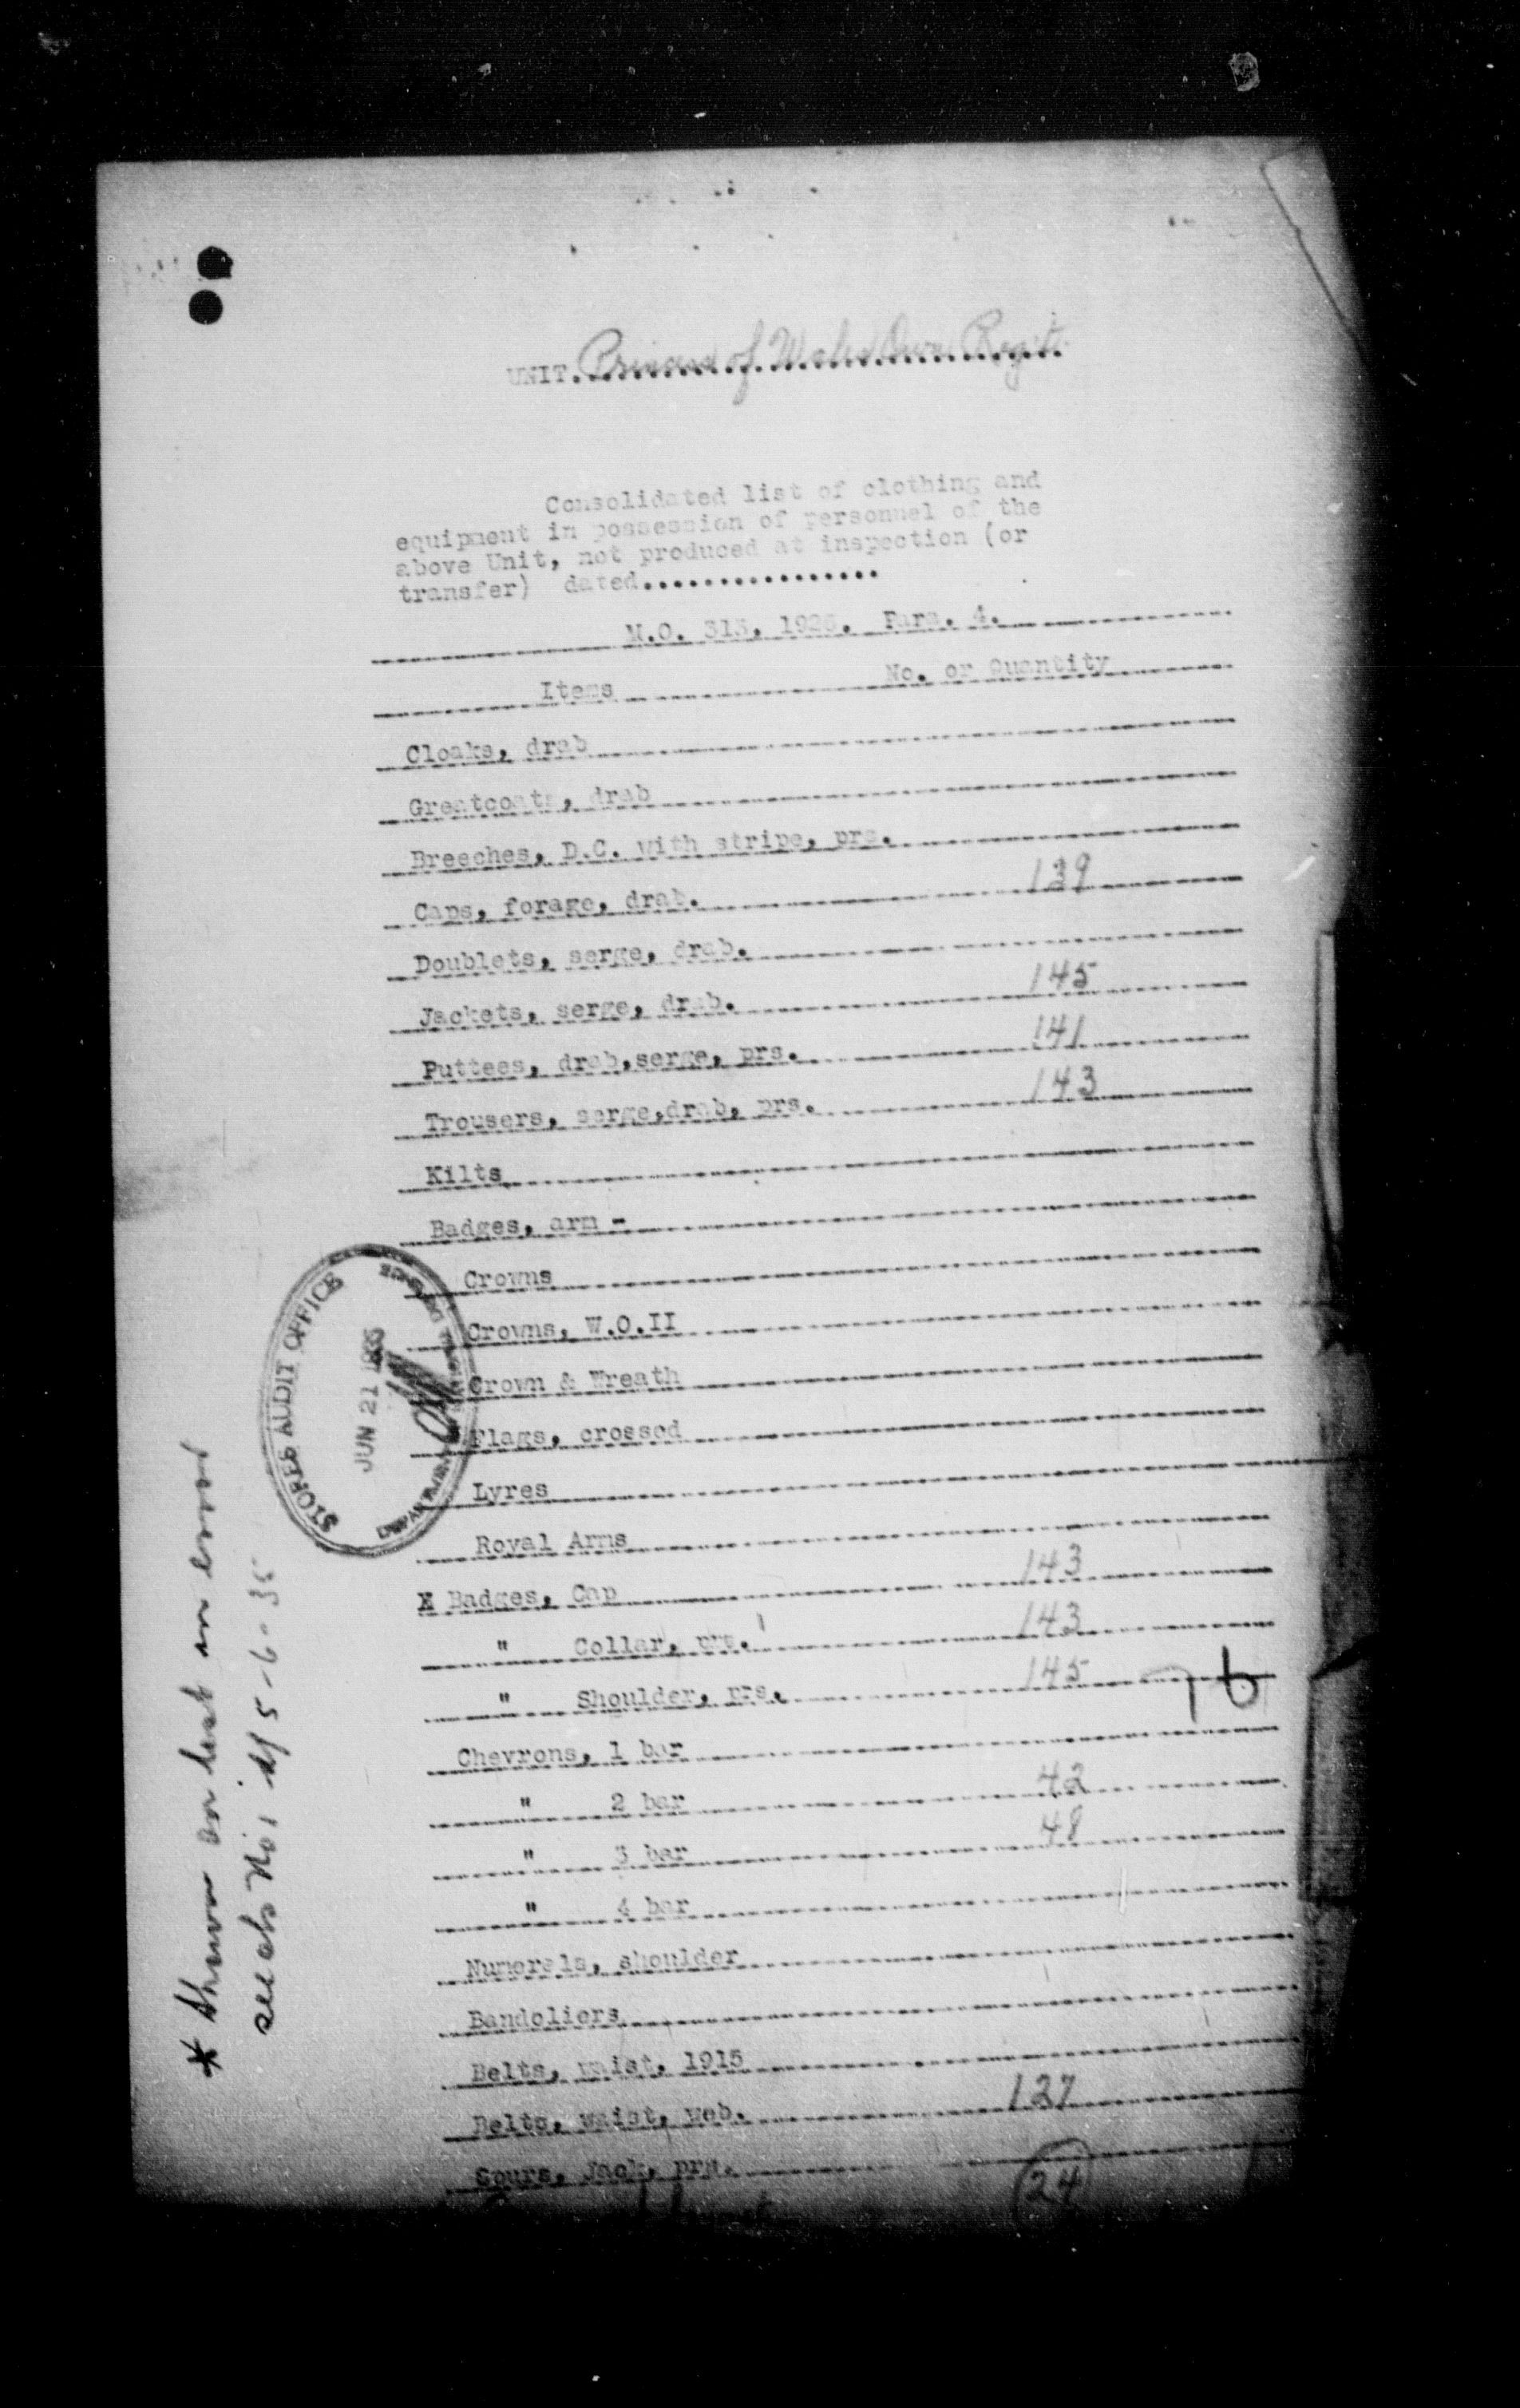 UNIT. Princess of Wales Own Regt.
Consolidated list of clothing and
equipment in possession of personnel of the
above Unit, not produced at inspection (or
transfer) dated.................
M.O. 313, 1923. Para. 4.
Items No. or Quantity
Cloaks, drab
Greatcoats, drab
Breeches, D.C. with stripe, prs.
Caps, forage, drab. 139
Doublets, serge, drab.
Jackets, serge, drab. 145
Puttees, drab,serge, prs. 141
Trousers, serge,drab, prs. 143
Kilts
Badges, arm -
Crowns
Crowns, W.O.II
Crown & Wreath
Flags, crossed
Lyres
Royal Arms
X Badges, Cap 143
" Collar, prs. 143
" Shoulder, prs. 145 76
Chevrons, 1 bar
" 2 bar 42
" 3 bar 48
" 4 bar
Numerals, shoulder
Bandoliers
Belts, waist, 1915
Belts, waist, web. 127
Spurs, Jack, prs.
24
STORES AUDIT OFFICE
JUN 21 1935
* Shown on last in error
5-6-35